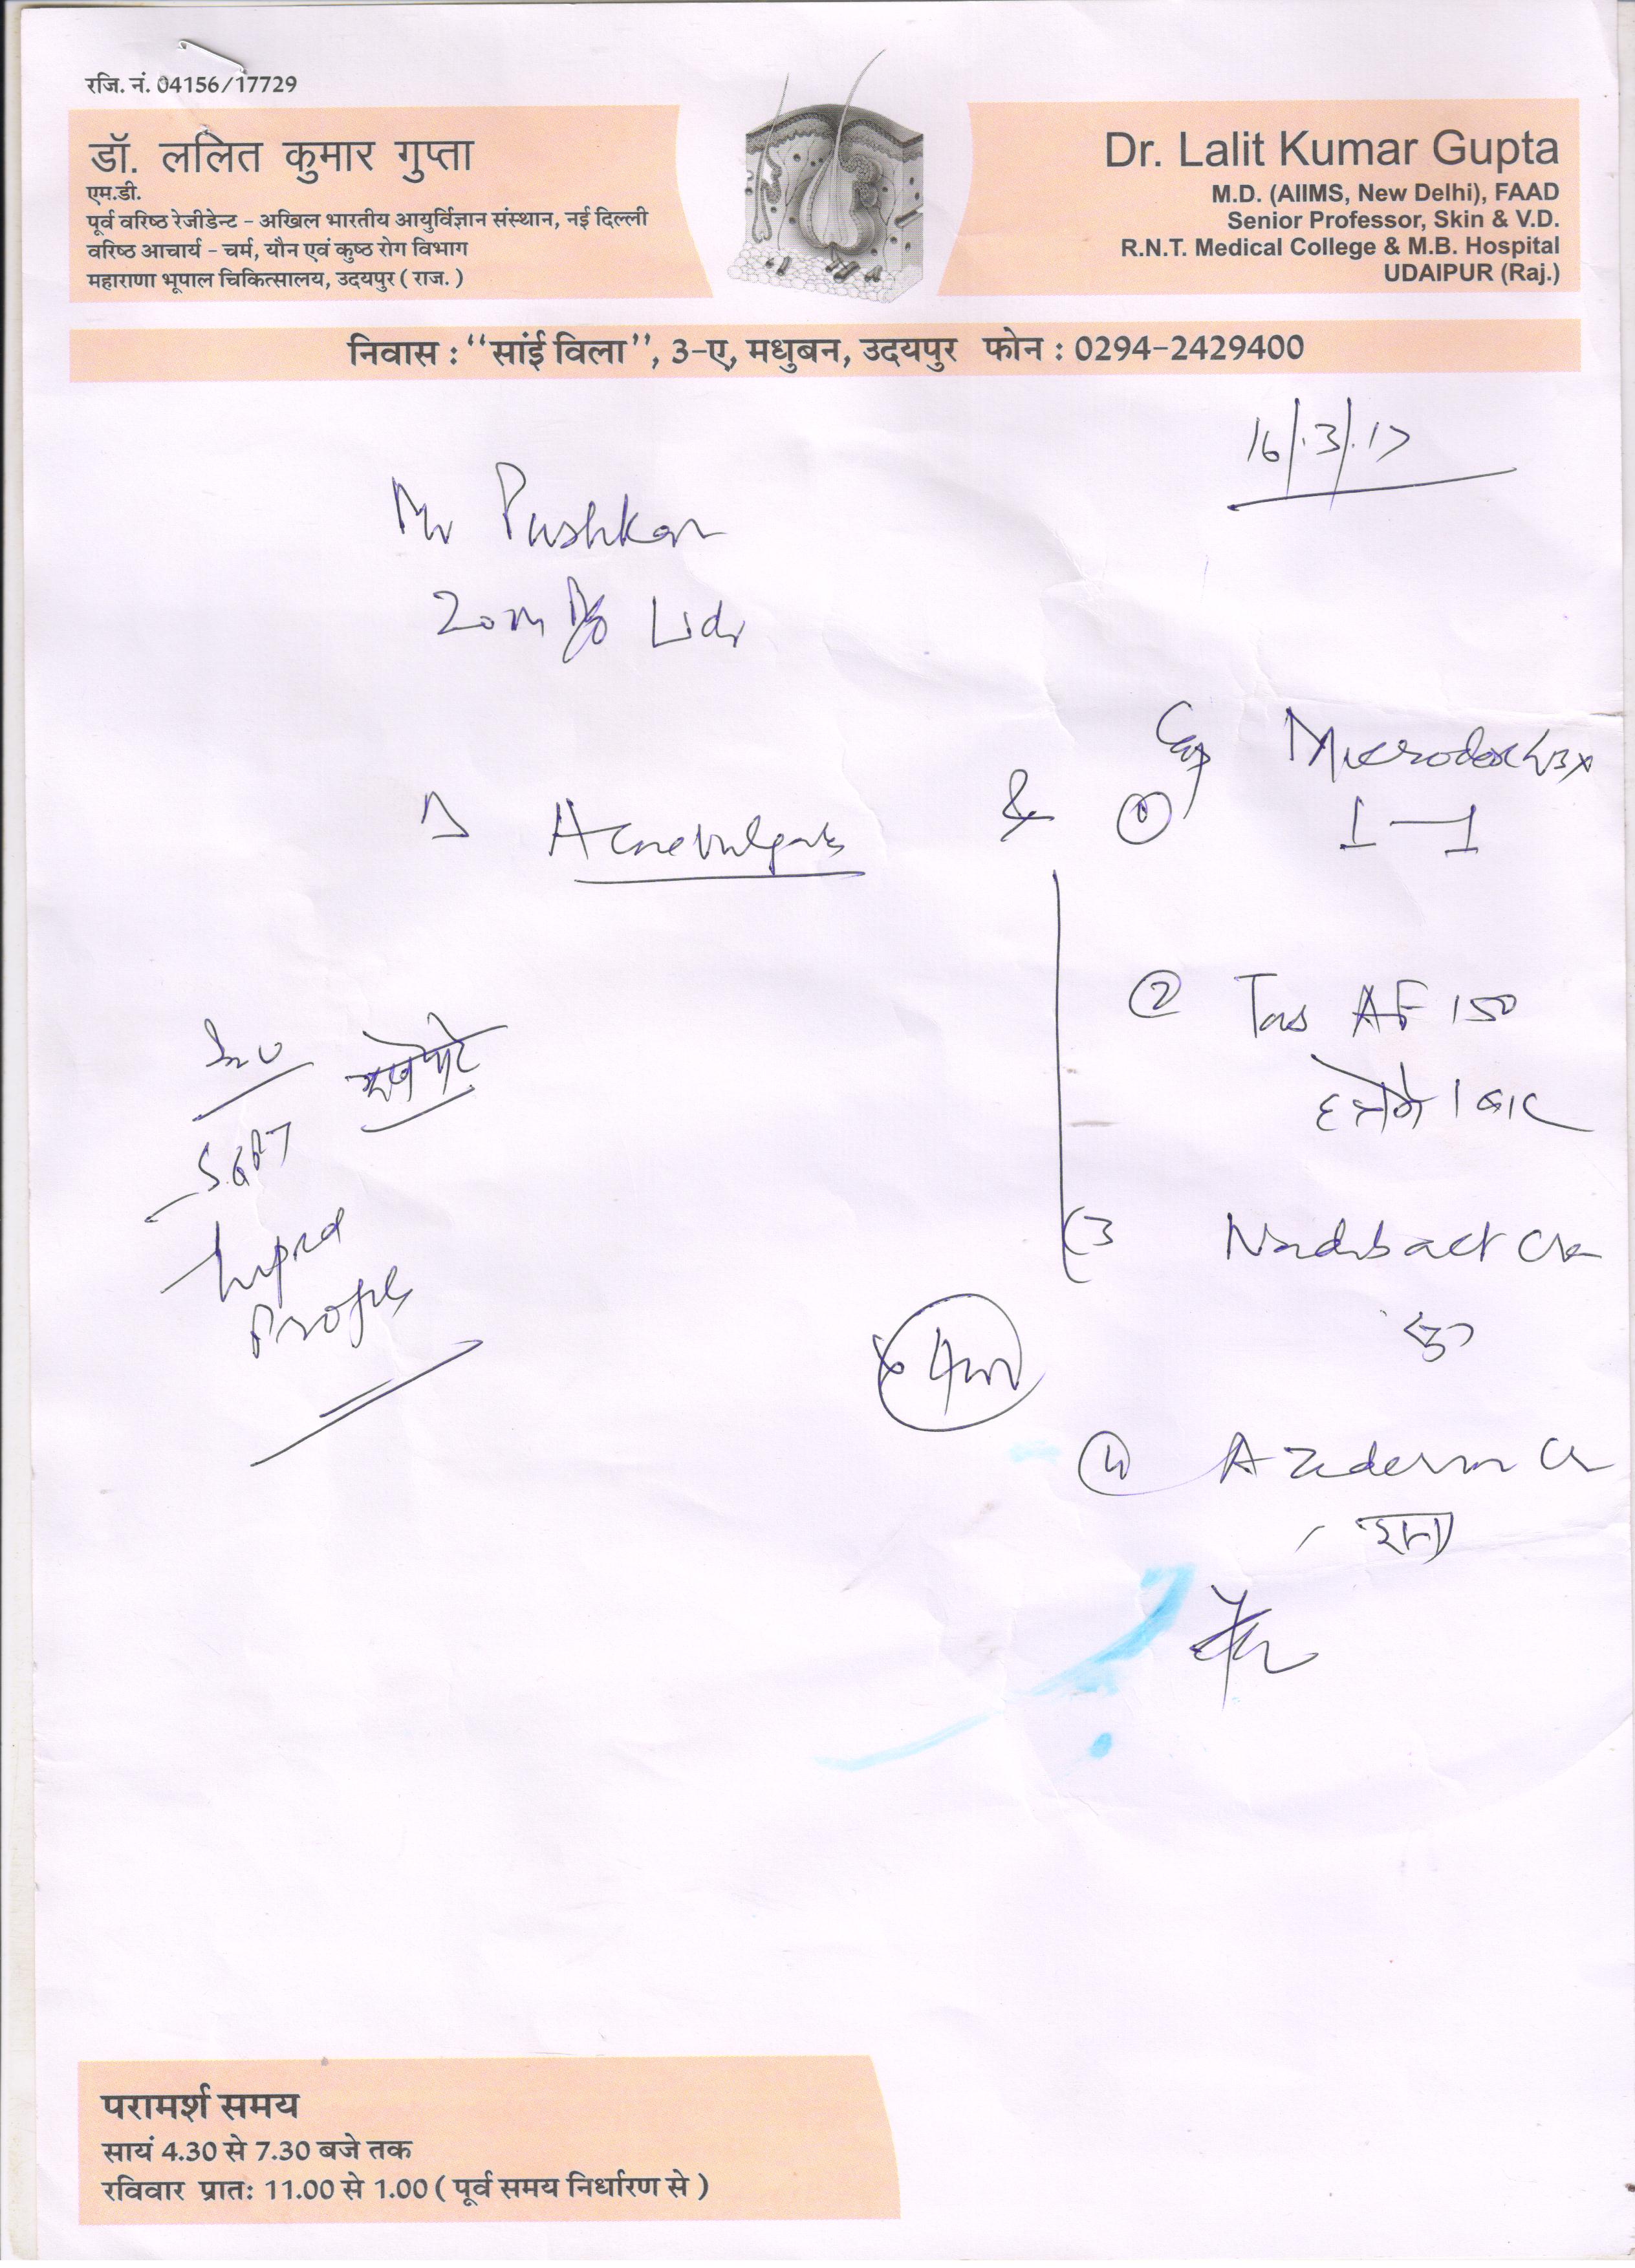 रजि. नं. 04156/17729
डॉ. ललित कुमार गुप्ता
एम.डी.
पूर्व वरिष्ठ रेजीडेन्ट - अखिल भारतीय आयुर्विज्ञान संस्थान, नई दिल्ली
वरिष्ठ आचार्य - चर्म, यौन एवं कुष्ठ रोग विभाग
महाराणा भूपाल चिकित्सालय, उदयपुर ( राज. )
Dr. Lalit Kumar Gupta
M.D. (AIIMS, New Delhi), FAAD
Senior Professor, Skin & V.D.
R.N.T. Medical College & M.B. Hospital
UDAIPUR (Raj.)
निवास : "सांई विला", 3-ए, मधुबन, उदयपुर फोन : 0294-2429400
16/3/17
Mr Pushkar
20m
Acne vulgaris
① Cap Microdox LBX
1-1
② Tab AF 150
1 बार
3 Nadibact Cre
④ Aziderm Cr
Inv
SGPT
Lipid
Profile
परामर्श समय
सायं 4.30 से 7.30 बजे तक
रविवार प्रातः 11.00 से 1.00 ( पूर्व समय निर्धारण से )